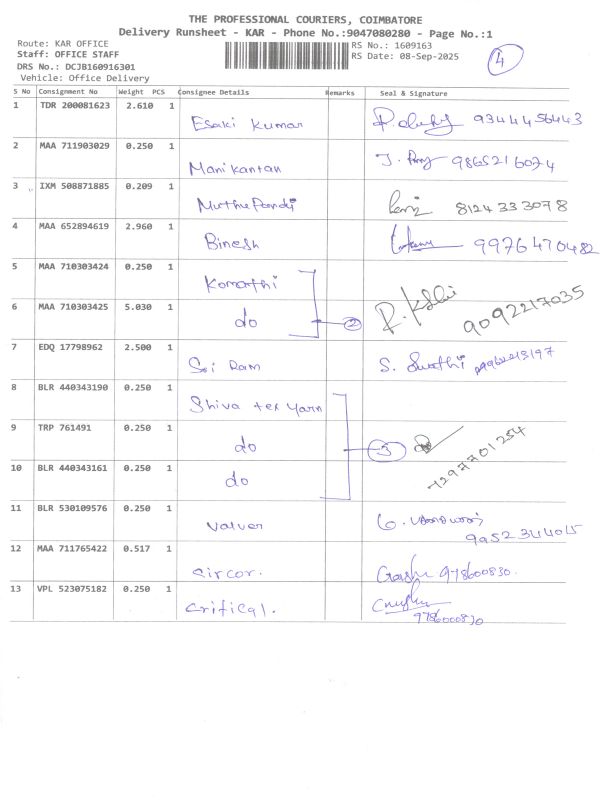 THE PROFESSIONAL COURIERS, COIMBATORE
Delivery Runsheet - KAR - Phone No.:9047080280 - Page No.:1
Route: KAR OFFICE
Staff: OFFICE STAFF
DRS No.: DCJB160916301
Vehicle: Office Delivery
RS No.: 1609163
RS Date: 08-Sep-2025
4
S No Consignment No Weight PCS Consignee Details Remarks Seal & Signature
1 TDR 200081623 2.610 1 Esaki Kumar 9344456443
2 MAA 711903029 0.250 1 Manikantan 9865216074
3 IXM 508871885 0.209 1 MuthuPandi 8124333078
4 MAA 652894619 2.960 1 Binesh 9976470482
5 MAA 710303424 0.250 1 Komathi
6 MAA 710303425 5.030 1 do 2 9092217035
7 EDQ 17798962 2.500 1 Sri Ram S. Swathi
8 BLR 440343190 0.250 1 Shiva tex yarn
9 TRP 761491 0.250 1 do 3 7297701254
10 BLR 440343161 0.250 1 do
11 BLR 530109576 0.250 1 Valver 9952344015
12 MAA 711765422 0.517 1 Circor. 978600830.
13 VPL 523075182 0.250 1 Critical. 9786000830